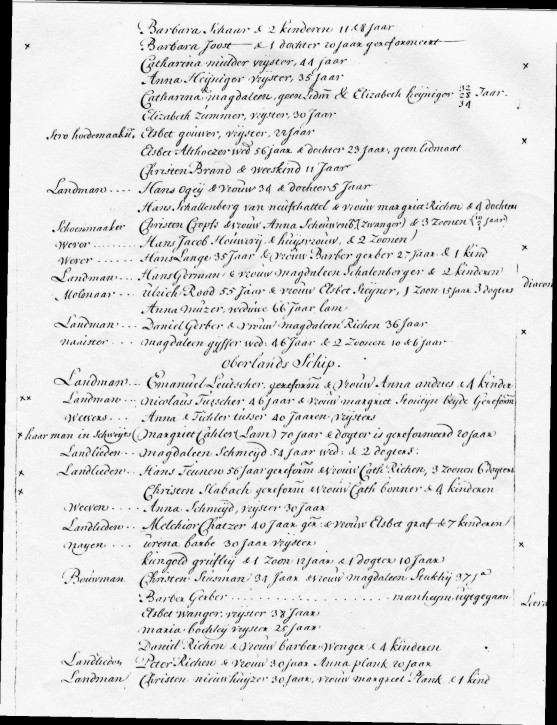 Barbara Schaar & 2 kinderen 11 & 8 Jaar
× Barbara Joost & 1 dochter 20 Jaar gereformeert
Catharina mulder vrijster, 44 jaar ×
Anna Heijniger vrijster, 35 jaar
Catharina magdaleen, geen Lidm & Elizabeth heijniger 32 28 34 Jaar.
Elizabeth zummer, vrijster, 30 Jaar
Stro hoedemaakst, Elsbet gouwer, vrijster, 22 Jaar ×
Elsbet Althoezer wed 56 jaar & dochter 23 Jaar, geen lidmaat
Christen Brand & weeskind 11 Jaar
Landman .... Hans Ogeij & vrouw 34 & dochter 5 Jaar
Hans Schallenberg van neufchattel & vrouw margriet Richen & 4 dochters
Schoenmaaker Christen Cropfs & vrouw Anna Schouwent (zwanger) & 3 zoonen
Wever ........ Hans Jacob Houwerij & huijsvrouw, & 2 zoonen
Wever ..... Hans Lange 35 Jaar & vrouw Barber gerber 27 Jaar & 1 kind ×
Landman .... Hans German & vrouw magdaleen Schalenborger & 2 kinderen
Molenaar ... ulrich Rood 55 Jaar & vrouw Elsbet Steijner, 1 zoon 15 jaar 3 dogters diacon
Anna muzer, weduwe 66 Jaar lam
Landman .. Daniel Gerber & vrouw magdaleen Richen 36 Jaar
naaister ... magdaleen gijsser wed: 46 Jaar & 2 zoonen 10 & 6 jaar ×
Oberlands Schip.
Landman .. Emanuel Leutscher. gereform & vrouw Anna anderes & 4 kinder
×× Landman .. nicolaus Tutscher 46 Jaar & vrouw margriet beyde Gereform
Wevers .... Anna & Tichler tutser 40 Jaaren, vrijsters
× haar man in Schweijts (margriet Cahler (Lam) 70 jaar & dogter is gereformeerd 20 jaar
Landlieden .. magdaleen Schmeijd 54 Jaar wed: & 2 dogters:
× Landlieden .. Hans Teunew 56 Jaar gereform & vrouw Cath Richen, 3 zoonen 6 dogters
× Christen Slabach gereform & vrouw Cath bonner & 4 kinderen
Weeven .... Anna Schmeijd, vrijster 30 Jaar
Landlieden .. Melchior Chatzer 40 Jaar ger: & vrouw Elsbet graf & 7 kinderen
Nayen .... urena barbe 30 Jaar vrijster
kungold & 1 zoon 12 jaar & 1 dogter 10 Jaar ×
Bouwman. Christen Stusman 34 Jaar & vrouw magdaleen 37 Ja
Barber Gerber .................. manheym uijtgegaan
Elsbet Wanger, vrijster 38 Jaar
maria bochley vrijster 25 jaar
Daniel Richen & vrouw barber Wenger & 4 kinderen
Landlieden, Peter Richen & vrouw 30 Jaar Anna plank 20 Jaar
Landman Christen nieuwhuijzer 30 Jaar, vrouw margreet Plank & 1 kind